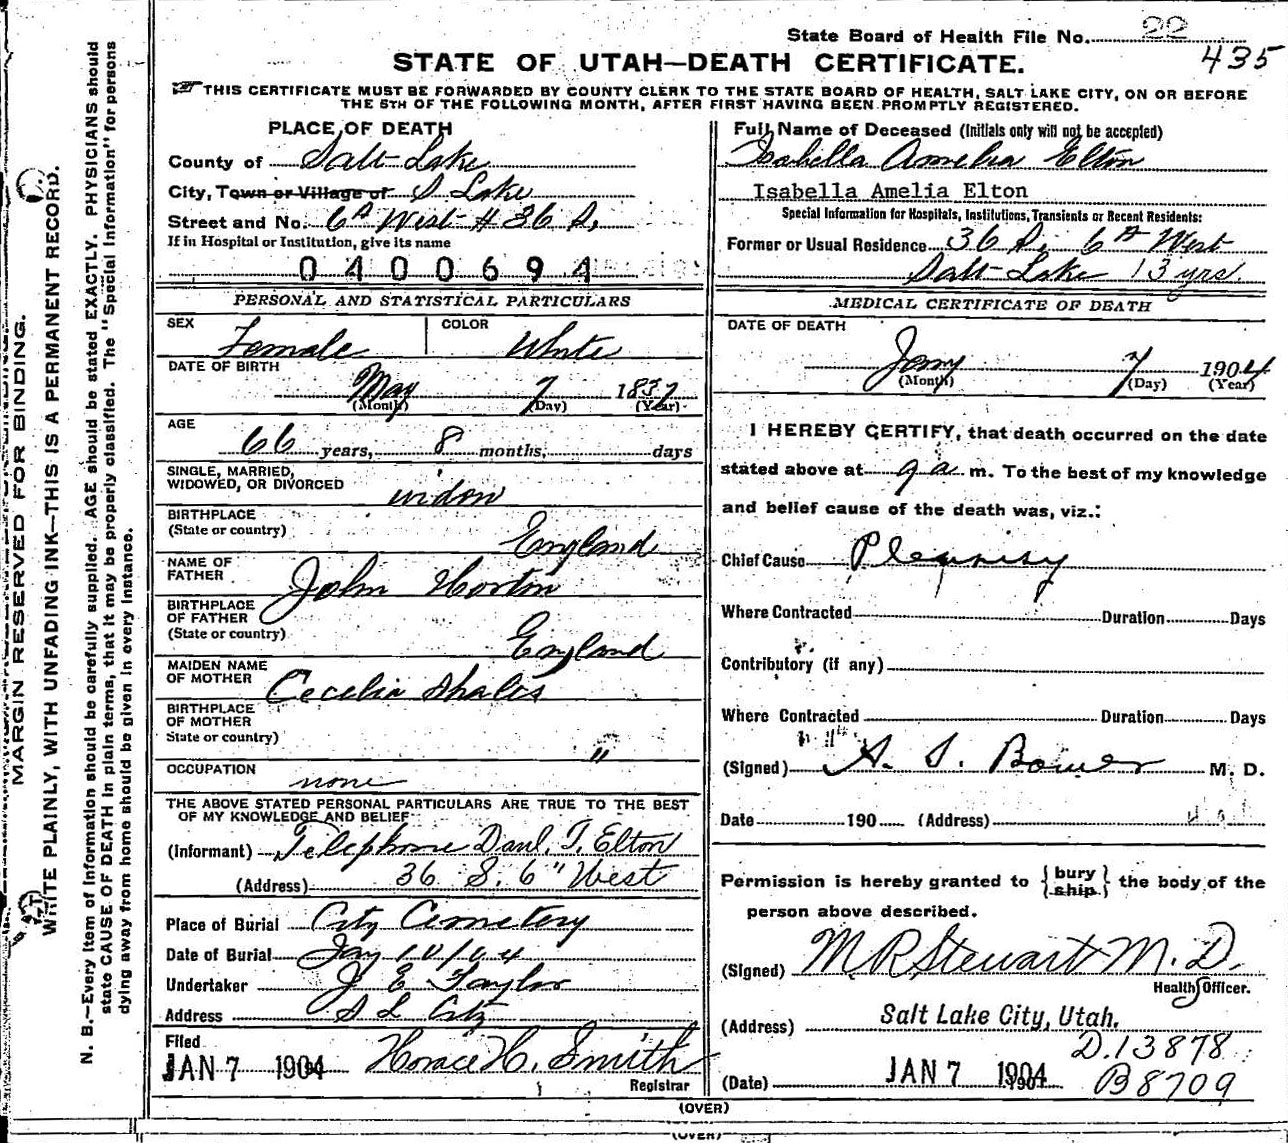 State Board of Health File No. 22
435
STATE OF UTAH—DEATH CERTIFICATE.
THIS CERTIFICATE MUST BE FORWARDED BY COUNTY CLERK TO THE STATE BOARD OF HEALTH, SALT LAKE CITY, ON OR BEFORE
THE 5TH OF THE FOLLOWING MONTH, AFTER FIRST HAVING BEEN PROMPTLY REGISTERED.
MARGIN RESERVED FOR BINDING.
WRITE PLAINLY, WITH UNFADING INK—THIS IS A PERMANENT RECORD.
N. B.—Every item of information should be carefully supplied. AGE should be stated EXACTLY. PHYSICIANS should
state CAUSE OF DEATH in plain terms, that it may be properly classified. The "Special Information" for persons
dying away from home should be given in every instance.
PLACE OF DEATH
County of Salt Lake
City, Town or Village of S Lake
Street and No. 6th West # 36 S.
If in Hospital or Institution, give its name
0400694
PERSONAL AND STATISTICAL PARTICULARS
SEX Female COLOR White
DATE OF BIRTH
May 7 1837
(Month) (Day) (Year)
AGE
66 years, 8 months, days
SINGLE, MARRIED,
WIDOWED, OR DIVORCED widow
BIRTHPLACE
(State or country) England
NAME OF
FATHER John Horton
BIRTHPLACE
OF FATHER
(State or country) England
MAIDEN NAME
OF MOTHER Cecelia Shales
BIRTHPLACE
OF MOTHER
State or country) "
OCCUPATION none
THE ABOVE STATED PERSONAL PARTICULARS ARE TRUE TO THE BEST
OF MY KNOWLEDGE AND BELIEF
(Informant) Telephone Danl. T. Elton
(Address) 36 S. 6" West
Place of Burial City Cemetery
Date of Burial Jay 10/04
Undertaker J E Taylor
Address S L City
Filed
JAN 7 1904 Horace H. Smith
Registrar
Full Name of Deceased (Initials only will not be accepted)
Isabella Amelia Elton
Isabella Amelia Elton
Special Information for Hospitals, Institutions, Transients or Recent Residents:
Former or Usual Residence 36 S. 6th West
Salt Lake 13 yrs.
MEDICAL CERTIFICATE OF DEATH
DATE OF DEATH
Jany 7 1904
(Month) (Day) (Year)
I HEREBY CERTIFY, that death occurred on the date
stated above at 9 a m. To the best of my knowledge
and belief cause of the death was, viz.:
Chief Cause Pleurisy
Where Contracted Duration Days
Contributory (if any)
Where Contracted Duration Days
(Signed) S. Bower M. D.
Date 190 (Address)
Permission is hereby granted to {bury ship} the body of the
person above described.
(Signed) M R Stewart M. D.
Health Officer.
(Address) Salt Lake City, Utah.
D.13878
(Date) JAN 7 1904 B8709
(OVER)
(OVER)